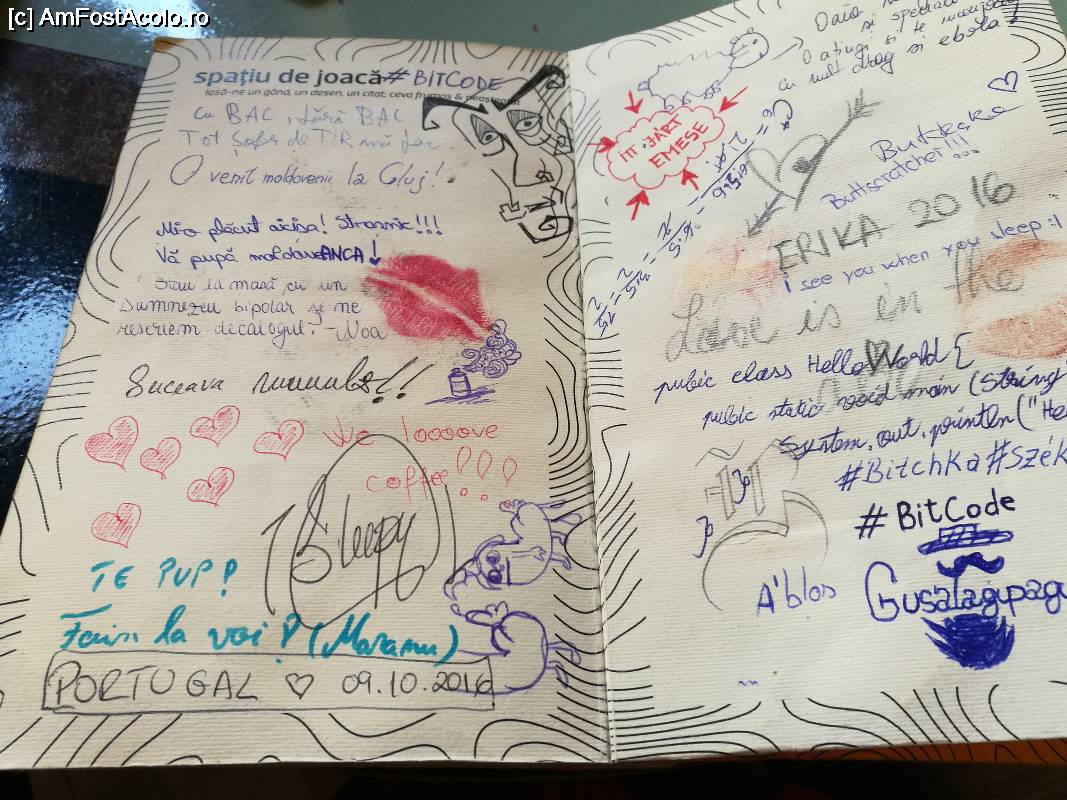 [c] AmFostAcolo.ro
spațiu de joacă #BITCODE
lasă-ne un gând, un desen, un citat; ceva frumos &
cu BAC, fără BAC
Tot șofer de TIR mă fac
O venit moldovenii la Cluj!
Mi-o plăcut aicișa! Strașnic!!!
Vă pupă moldoveANCA!
Stau la masă cu un
Dumnezeu bipolar și ne
rescriem decalogul. -Noa
Suceava
We loooove
coffee!!!
Sleepy
TE PUP!
Fain la voi! (Maramu)
PORTUGAL ♡ 09.10.2016
și
O atingi și te
cu mult drag și ebola!
ITT JÁRT
EMESE
Buttscratcher!!!
ERIKA 2016
i see you when you sleep :)
Love is in the
pubic class HelloWorld {
pubic static void main (String
System.out.println("He
#Bitchka #Szék
#BitCode
A'blos
Gusatagupagu